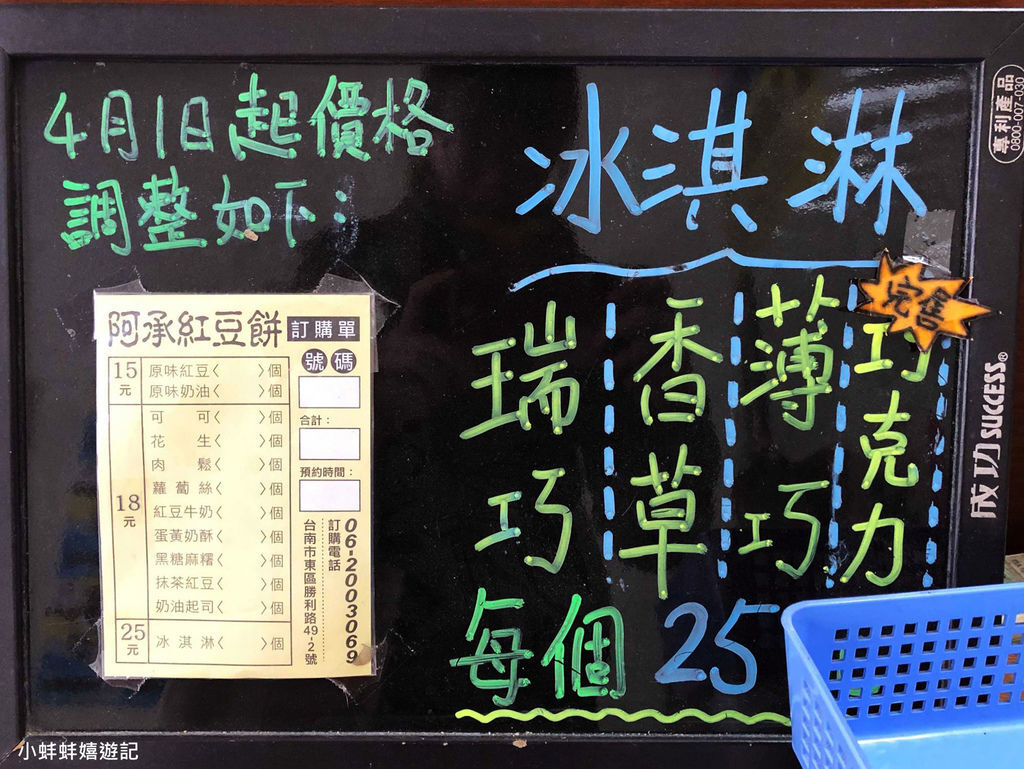 4月1日起價格
調整如下：
阿承紅豆餅 訂購單
15元
原味紅豆〈 〉個
原味奶油〈 〉個
18元
可可〈 〉個
花生〈 〉個
肉鬆〈 〉個
蘿蔔絲〈 〉個
紅豆牛奶〈 〉個
蛋黃奶酥〈 〉個
黑糖麻糬〈 〉個
抹茶紅豆〈 〉個
奶油起司〈 〉個
25元
冰淇淋〈 〉個
號碼
合計：
預約時間：
訂購電話
06-2003069
台南市東區勝利路49-2號
冰淇淋
瑞巧
香草
薄巧
巧克力
完售
每個25
專利產品
0800-007-030
成功 SUCCESS®
小蚌蚌嬉遊記